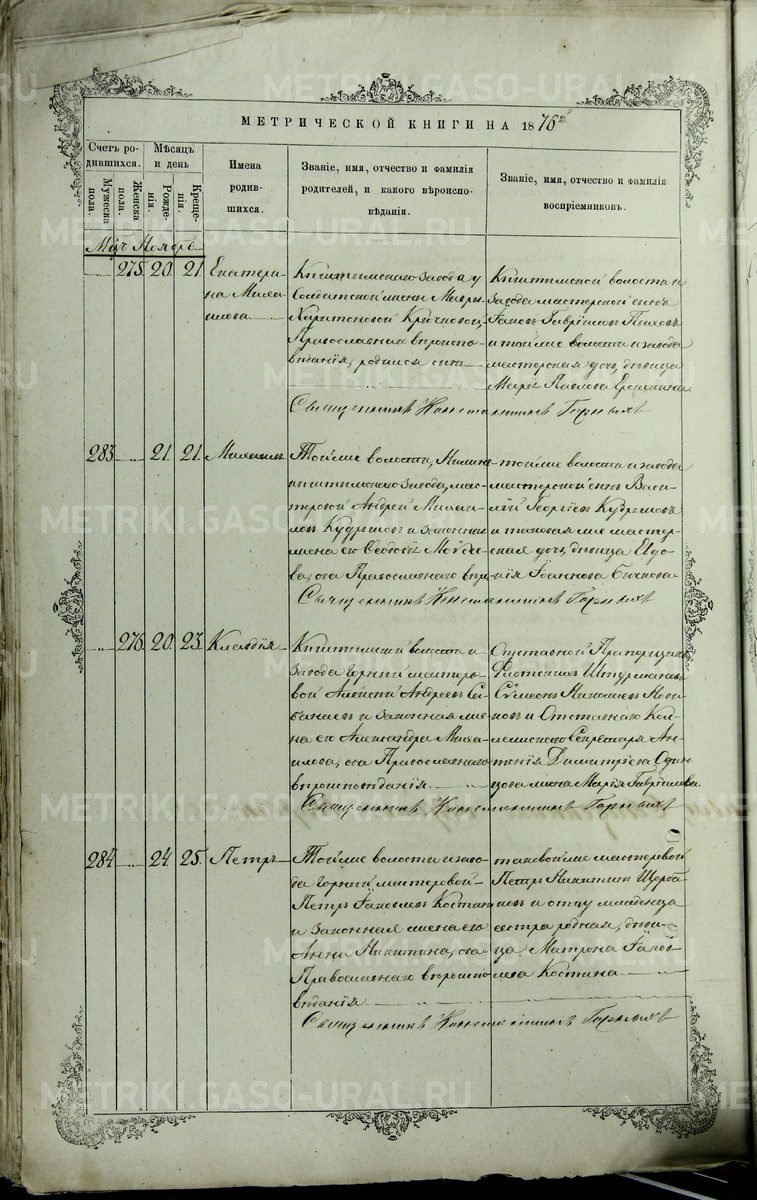 МЕТРИЧЕСКОЙ КНИГИ НА 1876й
Счетъ родившихся.
Мужеска пола.
Женска пола.
Мѣсяцъ и день
Рожденія.
Крещенія.
Имена родившихся.
Званіе, имя, отчество и фамилія родителей, и какого вѣроисповѣданія.
Званіе, имя, отчество и фамилія воспріемниковъ.
Мцъ Ноябрь.
275. 20. 21.
Екатерина Михаилова
Кыштымскаго Завода у
Солдатской жены Мавры
Харитоновой
Православнаго вѣроиспо-
вѣданія, родился сынъ
Кыштымской волости и
Завода мастерской сынъ
Іаковъ Гавріиловъ
и тойже волости и завода
мастерская дочь, дѣвица
Марія Павлова Ерошкина
Священникъ Константинъ Горныхъ
283. 21. 21.
Михаилъ
Тойже волости, Нижне-
кыштымскаго Завода, мас-
теровой Андрей Михаи-
ловъ Кудряшовъ и Законная
жена его Ѳеодосія Мойсее-
ва, оба Православнаго вѣр.
тойже волости и завода
мастерской сынъ Васи-
лій Георгіевъ Кудряшовъ
и таковая же мастер-
ская дочь, дѣвица Евдо-
кія Іоаннова Бычкова
Священникъ Константинъ Горныхъ
276. 20. 23.
Клавдія
Кыштымской волости и
Завода горный мастеро-
вой Алексій Андреевъ Са-
банаевъ и Законная же-
на его Александра Миха-
илова, оба Православнаго
вѣроисповѣданія
Отставной Прапорщикъ
Флотскихъ Штурмановъ
Сѵмеонъ Николаевъ Нови-
ковъ и Отставнаго Кол-
лежскаго Секретаря Ан-
тонія Димитріева Один-
цова жена Марія Гавріилова.
Священникъ Константинъ Горныхъ
284. 24. 25.
Петръ
Тойже волости и заво-
да горный мастеровой
Петръ Іаковлевъ Костинъ
и Законная жена его
Анна Никитина, оба
Православнаго вѣроиспо-
вѣданія
таковой же мастеровой
Петръ Никитинъ Щерба-
ковъ и отцу младенца
сестра родная, дѣви-
ца Матрона Іаков-
лева Костина
Священникъ Константинъ Горныхъ
METRIKI.GASO-URAL.RU